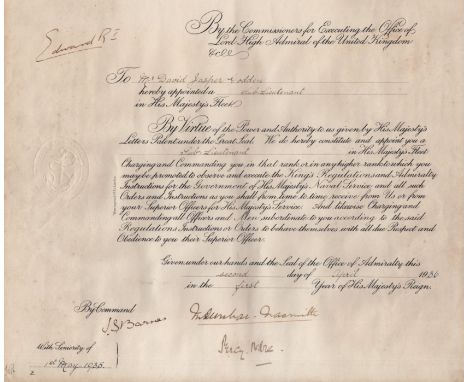 Edward R I
By the Commissioners for Executing the Office of
Lord High Admiral of the United Kingdom
&c &c &c
To Mr David Jasper
hereby appointed a Sub-Lieutenant
in His Majesty's Fleet
By Virtue of the Power and Authority to us given by His Majesty's
Letters Patent under the Great Seal. We do hereby constitute and appoint you a
Sub-Lieutenant in His Majesty's Fleet
Charging and Commanding you in that rank or in any higher rank to which you
may be promoted to observe and execute the King's Regulations and Admiralty
Instructions for the Government of His Majesty's Naval Service and all such
Orders and Instructions as you shall from time to time receive from Us or from
your Superior Officers for His Majesty's Service. And likewise Charging and
Commanding all Officers and Men subordinate to you according to the said
Regulations Instructions or Orders to behave themselves with all due Respect and
Obedience to you their Superior Officer.
Given under our hands and the Seal of the Office of Admiralty this
second day of April 1936
in the first Year of His Majesty's Reign.
By Command
J.S. Barnes
M Dunbar-Nasmith
Percy Noble.
With Seniority of
1st May 1935.